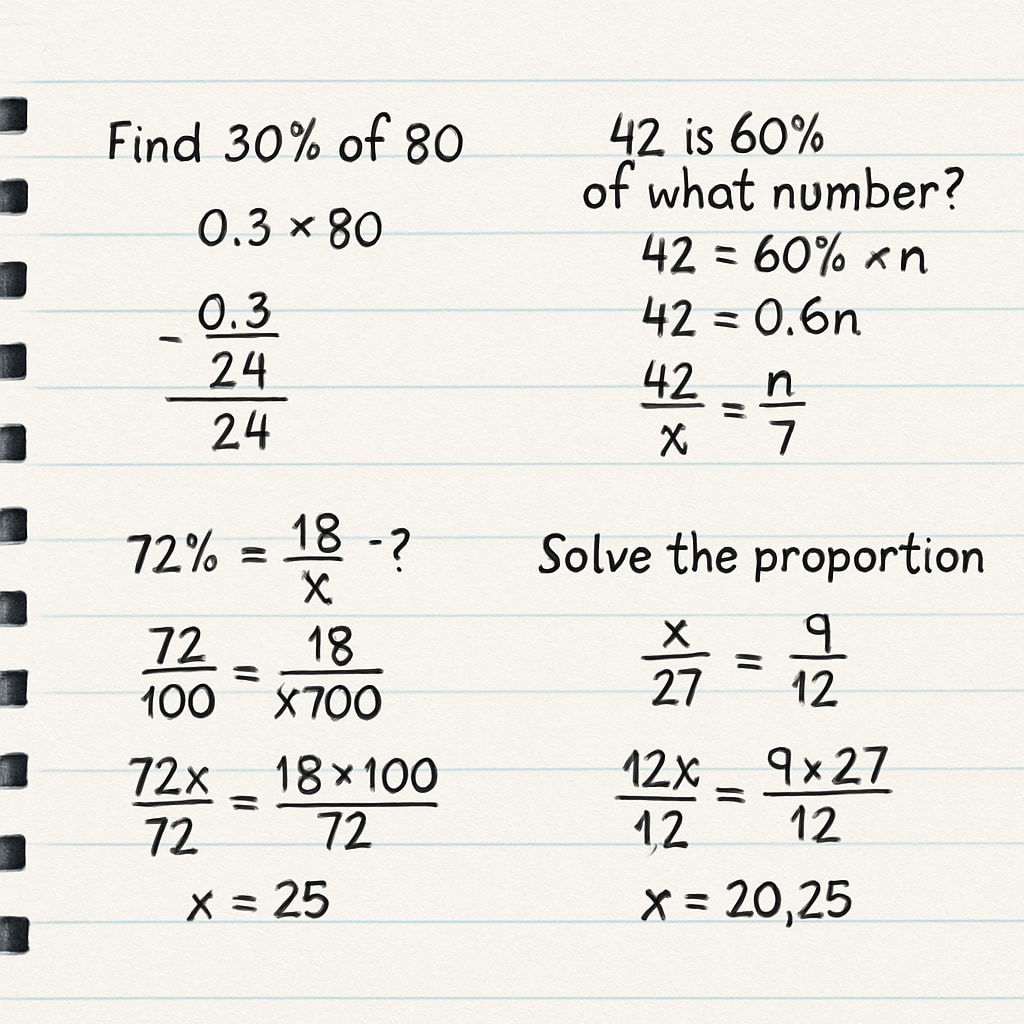 Find 30% of 80
0.3 × 80
0.3
- ―
24
24
42 is 60%
of what number?
42 = 60% × n
42 = 0.6n
42/x = n/7
72% = 18/x -?
72/100 = 18/x700
72x/72 = 18×100/72
x = 25
Solve the proportion
x/27 = 9/12
12x/1,2 = 9×27/12
x = 20,25